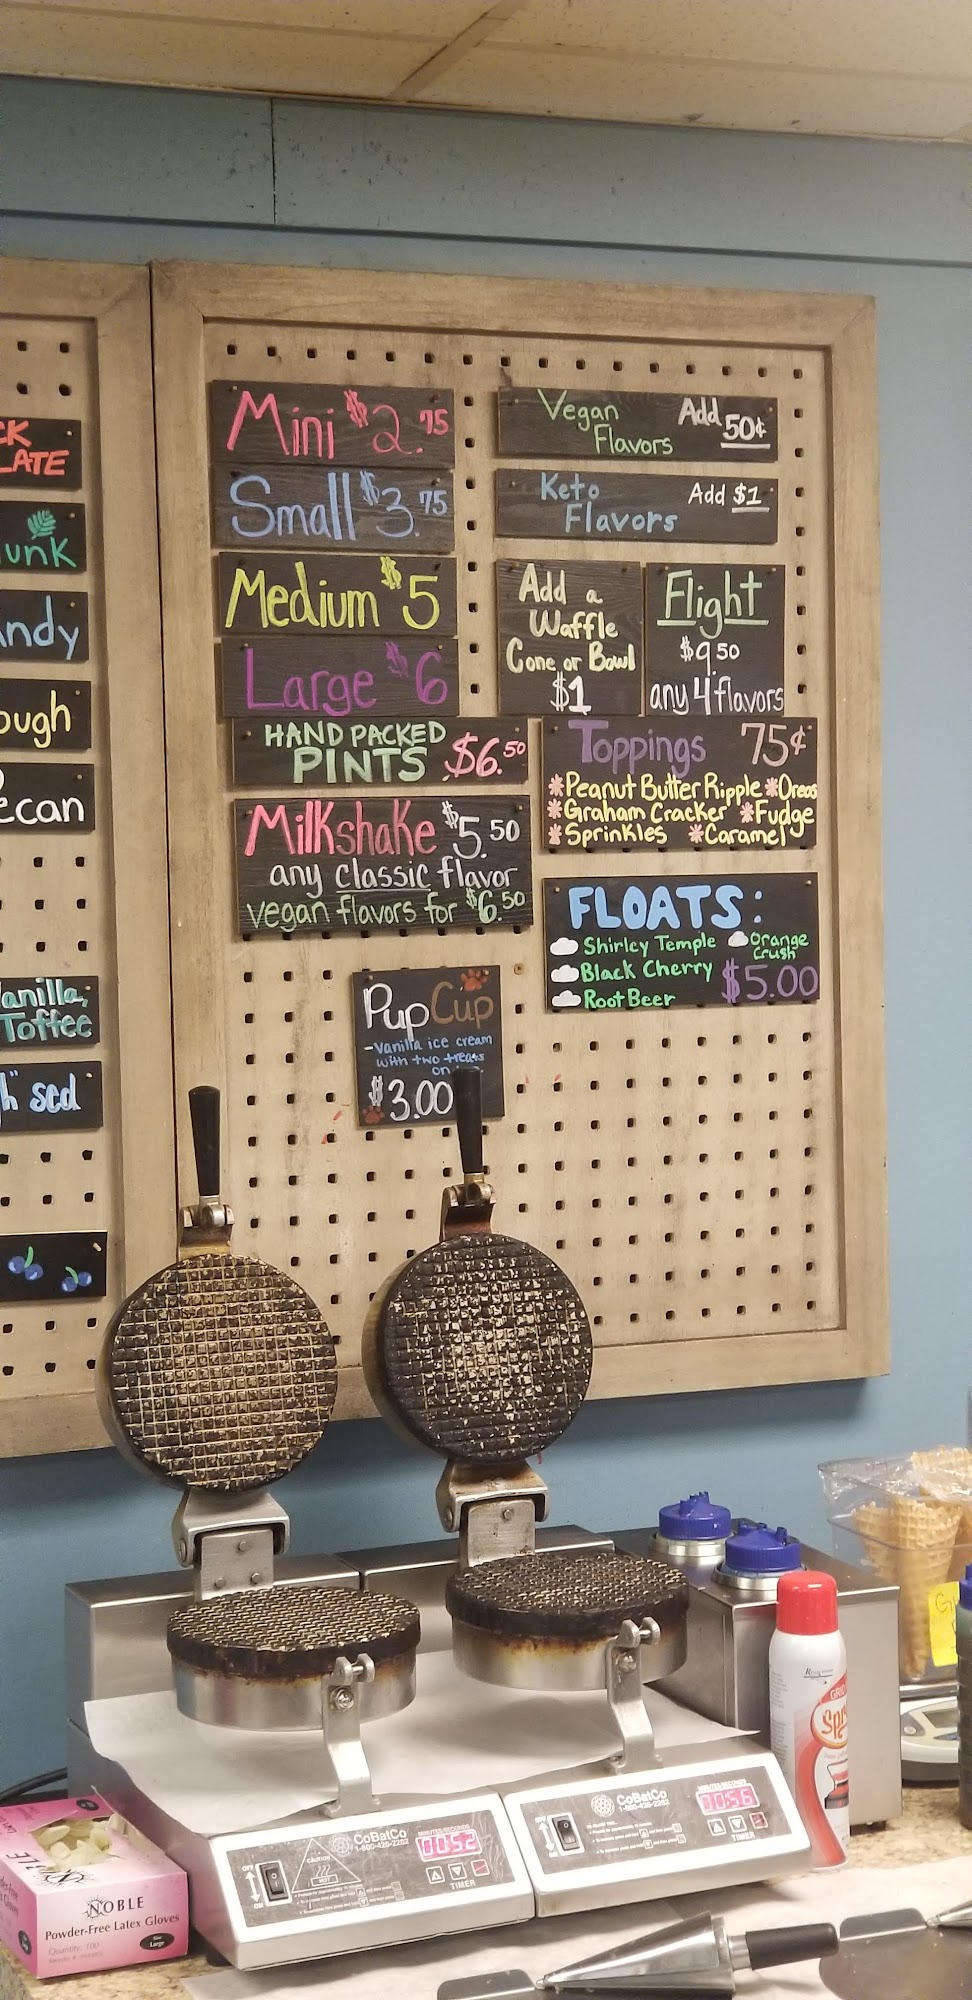 CK
LATE
unk
andy
ough
ecan
anilla,
Toffee
h" sed
Mini $2.75
Small $3.75
Medium $5
Large $6
HAND PACKED
PINTS $6.50
Milkshake $5.50
any classic flavor
vegan flavors for $6.50
Pup Cup
-vanilla ice cream
with two treats
on
$3.00
Vegan
Flavors
Add 50¢
Keto
Flavors
Add $1
Add a
Waffle
Cone or Bowl
$1
Flight
$9.50
any 4 flavors
Toppings 75¢
*Peanut Butter Ripple *Oreos
*Graham Cracker *Fudge
*Sprinkles *Caramel
FLOATS:
Shirley Temple
Orange
Crush
Black Cherry
Root Beer
$5.00
CoBatCo
1-800-426-2282
MINUTES:SECONDS
00:52
CAUTION
HOT
OFF
ON
TIMER
CoBatCo
1-800-426-2282
MINUTES:SECONDS
00:56
OFF
ON
TIMER
NOBLE
Powder-Free Latex Gloves
Quantity: 100
Size
Large